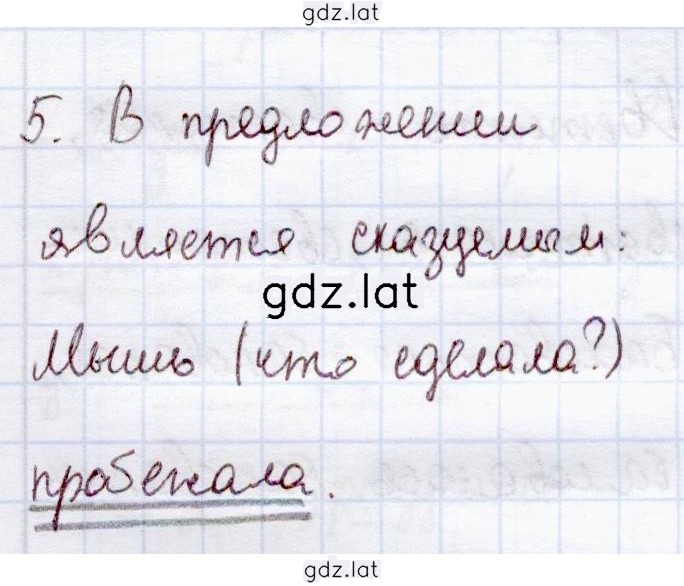 gdz.lat
5. В предложении
является сказуемым:
gdz.lat
Мышь (что сделала?)
пробежала.
gdz.lat